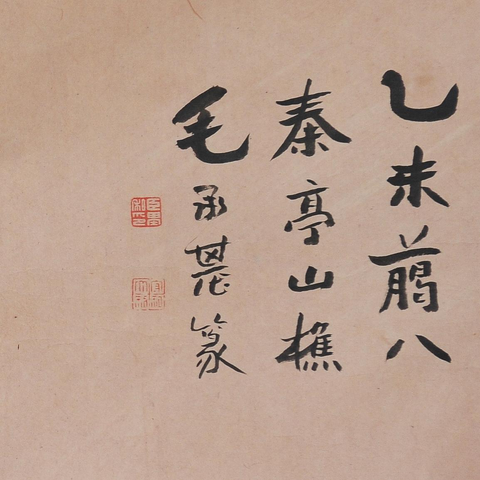 乙未臈八
秦亭山樵
毛承篆